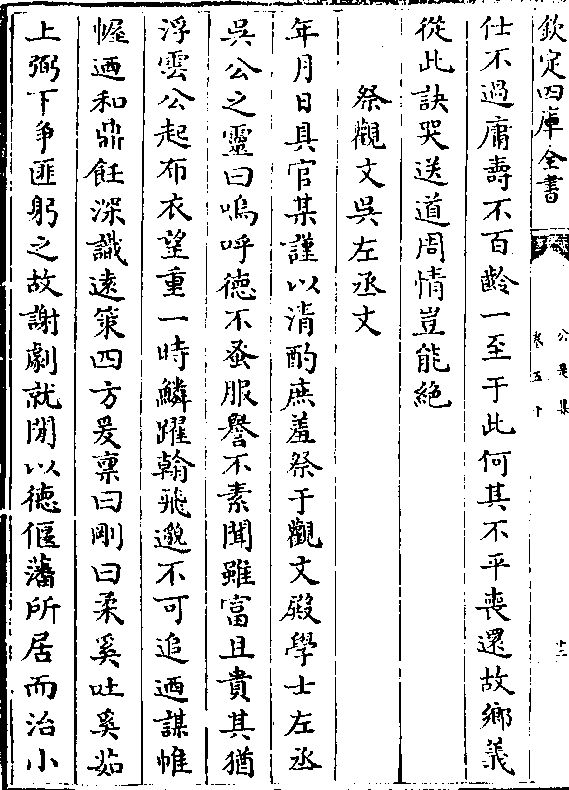 欽定四庫全書
公是集
卷五十
十三
仕不過庸壽不百齡一至于此何其不平喪還故鄉義
從此訣哭送道周情豈能絶
祭觀文吳左丞文
年月日具官某謹以清酌庶羞祭于觀文殿學士左丞
吳公之靈曰嗚呼德不蚤服譽不素聞雖富且貴其猶
浮雲公起布衣望重一時鱗躍翰飛邈不可追迺謀帷
幄迺和鼎飪深識遠策四方爰稟曰剛曰柔奚吐奚茹
上弼下爭匪躬之故謝劇就閒以德偃藩所居而治小